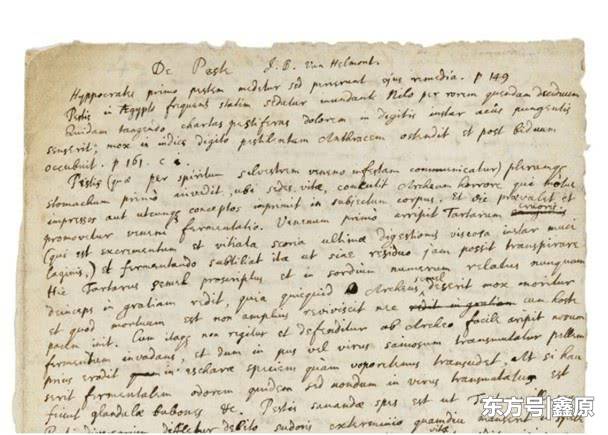 De Peste J. B. Van Helmont.
Hyppocrates primo pestem medetur sed perierunt ejus remedia. p 149
Pestis in Ægypto frequens statim sedatur inundante Nilo per rorem quendam deciduum
Quidam tangendo chartas pestiferas dolorem in digitis instar acûs pungentis
senserit; mox in indice digito pestilentem Anthracem ostendit et post biduum
occubuit. p 161. c
Pestis (quæ per spiritum silvestrem veneno infestam communicatur) plerumq
stomachum primò invadit, ubi sedes vitæ, concutit Archeum horrore, qui
impressos aut utcunq conceptos imprimit in subjectum corpus. Et die prævalet et
promovetur veneni fermentatio. Venenum primo arripit Tartarum cruoris
(qui est excrementum et vitiata scoria ultimæ digestionis viscosa instar muci
laginis,) et fermentando subtiliat ita ut sine residuo jam possit transpirare
Hic Tartarus semel proscriptus et in sordium numerum relatus nunquam
deinceps in gratiam redit, quia quicquid Archeus semel deserit mox moritur
et quod mortuum est non amplius reviviscit nec redit in gratiam cum hoste
pacem init. Cum itaq non regitur et defenditur ab Archeo facile arripit novum
fermentum invadens, et dum in pus vel virus saniosum transmutatur pellem
prius erodit in escharæ speciem quàm vaporabimus transudet. At si hau
serit fermentalem odorem quidem sed nondum in virus transmutatum est
fiunt glandulæ bubones &c. Pestis sanandæ spes est ut
debito sudoris exterminio quamdiu
东方号|鑫原